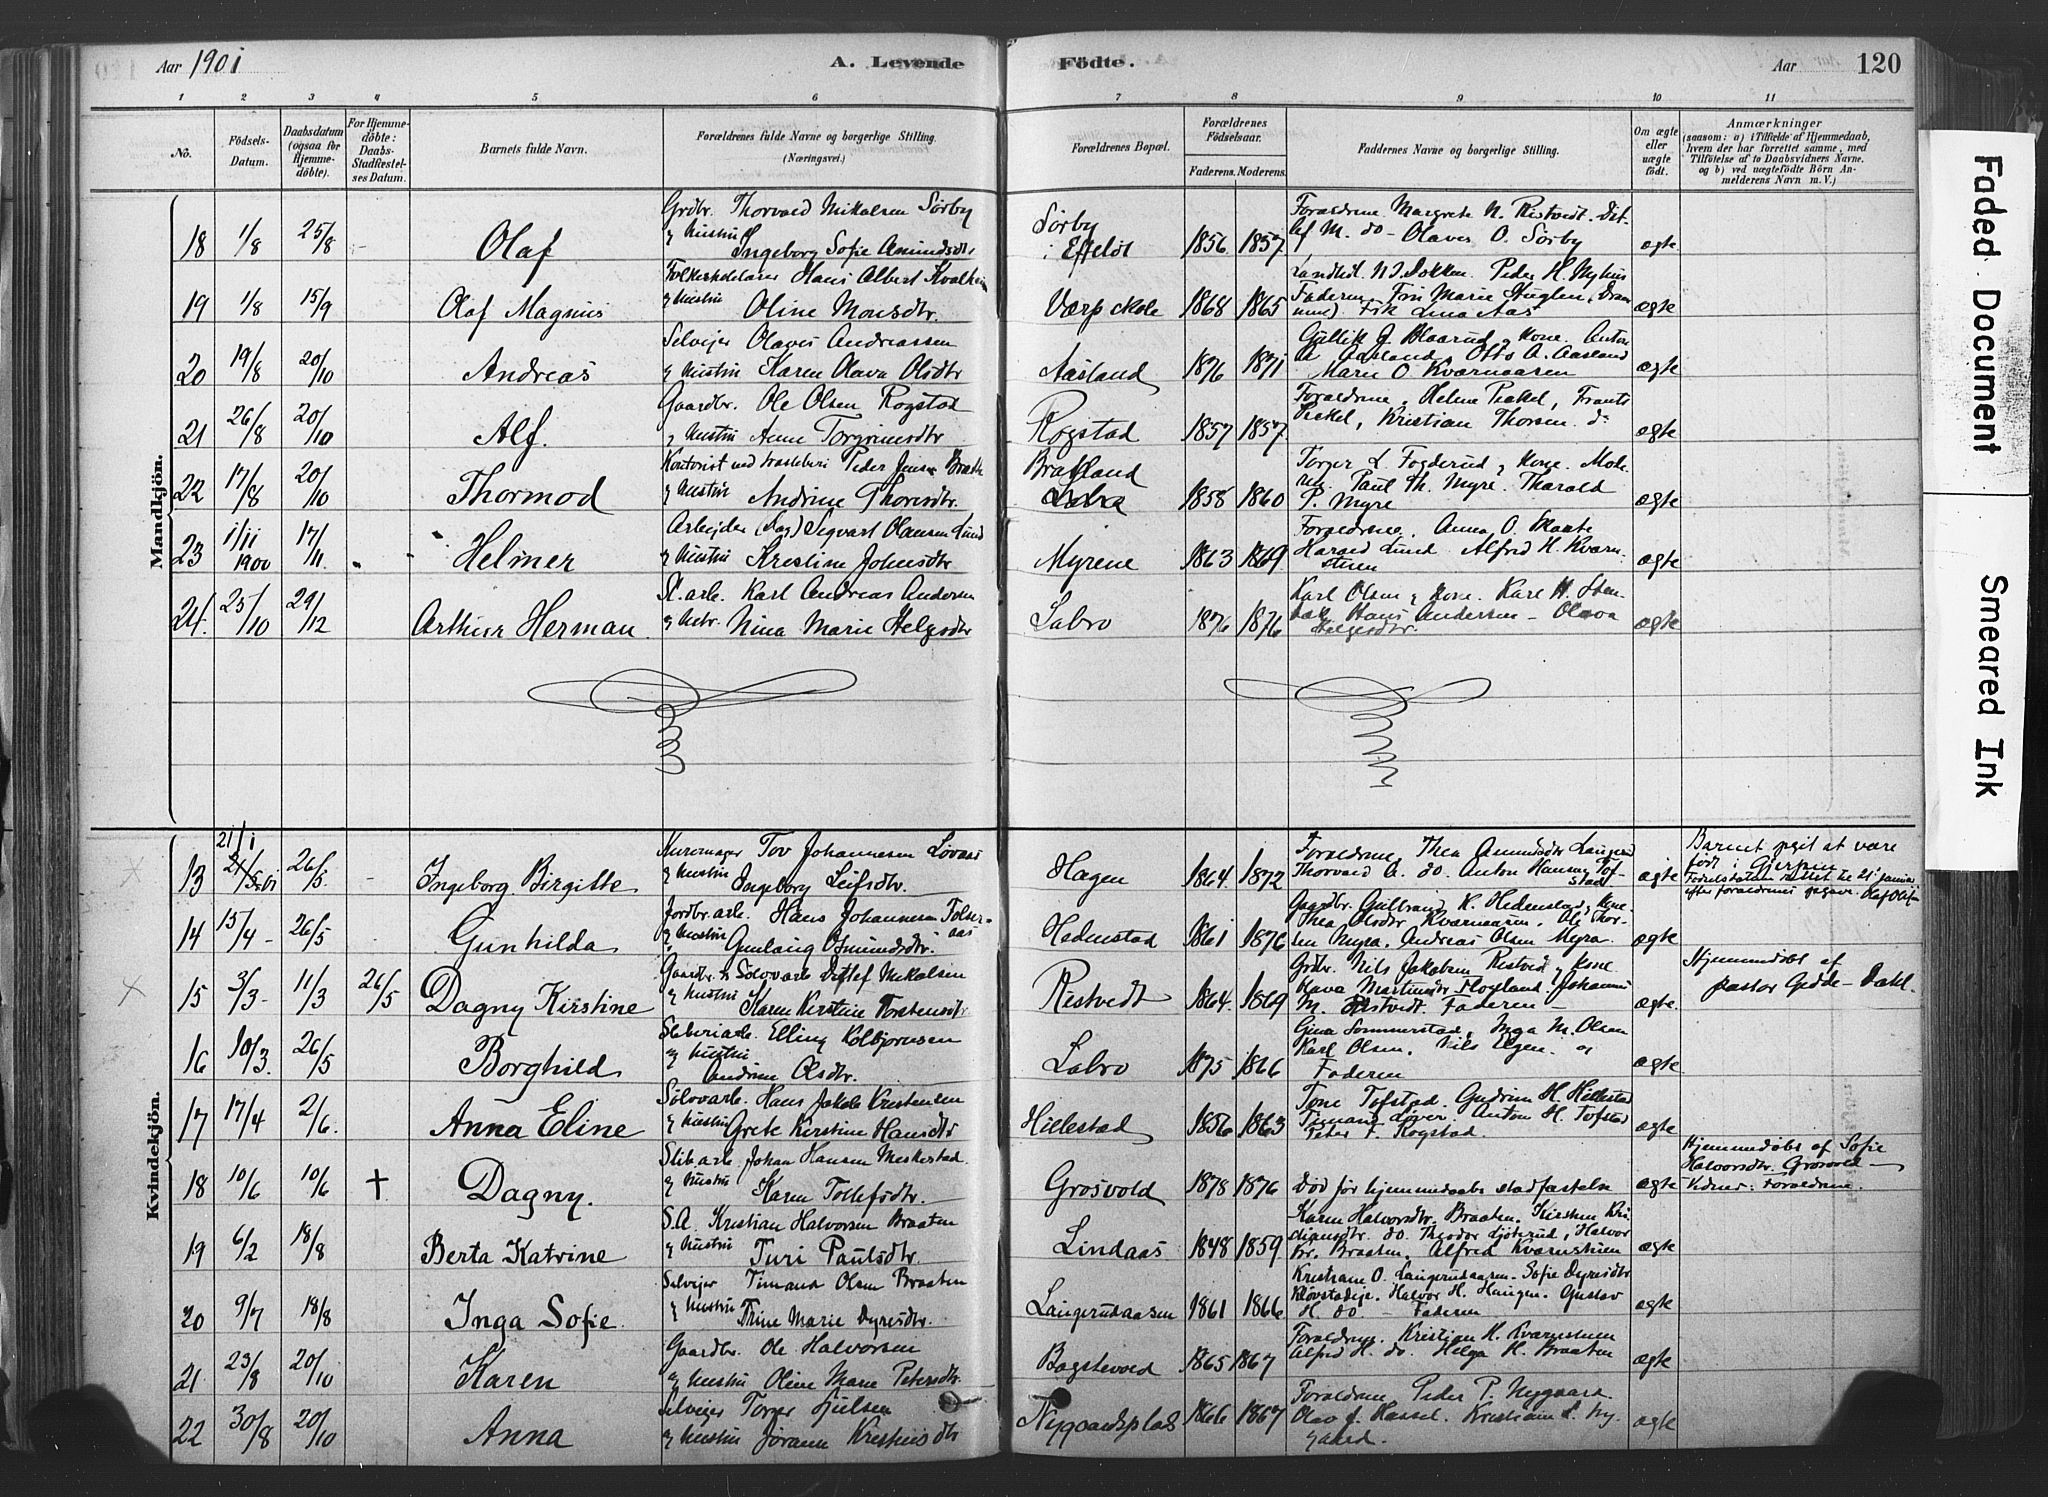 Aar 1901
A. Levende
Födte.
Aar
120
1 2 3 4 5 6 7 8 9 10 11
No.
Födsels-Datum.
Daabsdatum (ogsaa for Hjemme-döbte).
For Hjemme-döbte: Daabs-Stadfæstel-ses Datum.
Barnets fulde Navn.
Forældrenes fulde Navne og borgerlige Stilling. (Næringsvei.)
Forældrenes Bopæl.
Forældrenes Födselsaar.
Faderens. Moderens.
Faddernes Navne og borgerlige Stilling.
Om ægte eller uægte födt.
Anmærkninger
(saasom: a) i Tilfælde af Hjemmedaab, hvem der har forrettet samme, med Tilföielse af to Daabsvidners Navne, og b) ved uægtefödte Börn An-melderens Navn m. V.)
Mandkjön.
18 1/8 25/8 Olaf
Grdbr. Thorvald Mikalsen Sørby
og Hustru Ingeborg Sofie Amundsdtr
Sørby i Efteløt 1856 1857
Forældrene. Margrete N. Restvedt. Det-
lef M. do - Olaves O. Sørby
ægte
19 1/8 15/9 Olaf Magnus
Hans Albert
og Hustru Oline Monsdtr.
Værp skole 1868 1865
Peder H. Myhus
Faderen. Frk Lina Aas
ægte
20 19/8 20/10 Andreas
Selvejer Olaves Andreassen
og Hustru Karen Olava Olsdtr
Aasland 1876 1871
Gullik J. Blaarud og Kone. Anton
A. Aasland, Otto A. Aasland
Marie O. Kværnaasen
ægte
21 26/8 20/10 Alf.
Gaardbr. Ole Olsen Rogstad
og Hustru Anne Torgrimsdtr
Rogstad 1857 1857
Forældrene, Helene Peckel, Frants
Peckel, Kristian Thorsen do
ægte
22 17/8 20/10 Thormod
Kontorist ved træsliberi Peder Jensen
og Hustru Andrine Thoresdtr.
Labro 1858 1860
Torger L. Fogderud og Kone. Mode-
ren. Paul Th. Myre. Tharald
P. Myre
ægte
23 1/11 1900 17/11 Helmer
Arbejder (Sag) Segvart Olausen Lund
og Hustru Kristine Johnsdtr
Myrene 1863 1869
Forældrene, Anna O. Skaate
Harald Lund. Alfred H. Kværn-
stuen
ægte
24. 25/10 29/12 Arthur Herman
Karl Andreas Andersen
og Nina Marie Helgesdtr
Labro 1876 1876
Karl Olsen og Kone. Karl H. Sten-
bak Hans Andersen - Olava
Helgesdtr.
ægte
Kvindekjön.
13 21/1 26/5 Ingeborg Birgitte
Tov Johannesen Løvaas
og Hustru Ingeborg Leifsdtr.
Hagen 1864. 1872
Forældrene, Thea Amundsdtr Langerud
Thorvald A. do. Anton Hansen Tof-
stad
ægte
Barnet opgit at være
født i Gjerpen
Fødselsdatum rettet til 21 januar
efter forældrenes opgave.
14 15/4 26/5 Gunhilda
Jordbr.arb. Hans Johannesen
og Hustru Gunlaug Osmundsdtr.
Hedenstad 1861 1876
Gaardbr. Gulbrand K. Hedenstad og Kone
Thea Olsdtr Kværnaasen, Ole Thor-
sen Myra, Andreas Olsen Myra.
ægte
15 3/3 11/3 26/5 Dagny Kirstine
Gaardbr. & Sølvarb Detlef Mikalsen
og Hustru Karen Kirstine Torstensdtr
Restvedt 1864. 1869
Grdbr. Nils Jakobsen Restved og Kone
Martinsdtr Hoyland. Johannes
M. Restvedt. Faderen -
ægte
Hjemmedøbt af
pastor Gedde-Dahl.
16 10/3. 26/5 Borghild
Sliberiarb. Elling Kolbjørnsen
og Hustru Andrine Olsdtr.
Labro 1875 1866
Gina Sommerstad, Inga M. Olsen
Karl Olsen, Nils Elgen. og
Faderen
ægte
17 17/4 2/6. Anna Eline
Sølvarb. Hans Jakob Kristensen
og Hustru Grete Kirstine Hansdtr
Hillestad 1856 1863
Tone Tofstad Gudrun H. Hillestad
Timand Løver Anton H. Tofstad
Peter F. Rogstad.
ægte
18 10/6 10/6 † Dagny.
Slib.arb. Johan Hansen Meskestad.
og Hustru Karen Tollefsdtr.
Grosvold 1878 1876
Død før hjemmedaabs stadfæstelse
ægte
Hjemmedøbt af Sofie
Halvorsdtr. Grosvold
Vidner: Forældrene.
19 6/2 18/8 Berta Katrine
S.A. Kristian Halvorsen Braaten
og Hustru Turi Paulsdtr.
Lindaas 1848 1859
Karen Halvorsdtr. Braaten. Kirsten Kri-
stiansdtr. do. Theodor Ljøterud, Halvor
Kr. Braaten, Alfred Kværnstuen
ægte
20 9/7 18/8 Inga Sofie.
Selvejer Timand Olsen Braaten
og Hustru Trine Marie Dyresdtr.
Langerudaasen 1861 1866
Kristiane O. Langerudaasen - Sofie Dyresdtr
Kløvstadeje. Halvor H. Haugen. Gustav
H. do - Faderen
ægte
21 23/8 20/10 Karen
Gaardbr. Ole Halvorsen
og Hustru Oline Marie Petersdtr.
Bogstevold 1865 1867
Forældrene. Kristian H. Kværnstuen
Alfred H. do. Helga H. Braaten
ægte
22 30/8 20/10 Anna
Selvejer Torger Gjulsen
og Hustru Jørann Kristensdtr
Nygaardsplads 1866 1867
Forældrene, Peder P. Nygaard.
Olav J. Hassel. Kristian L. Ny-
gaard.
ægte
Faded Document
Smeared Ink